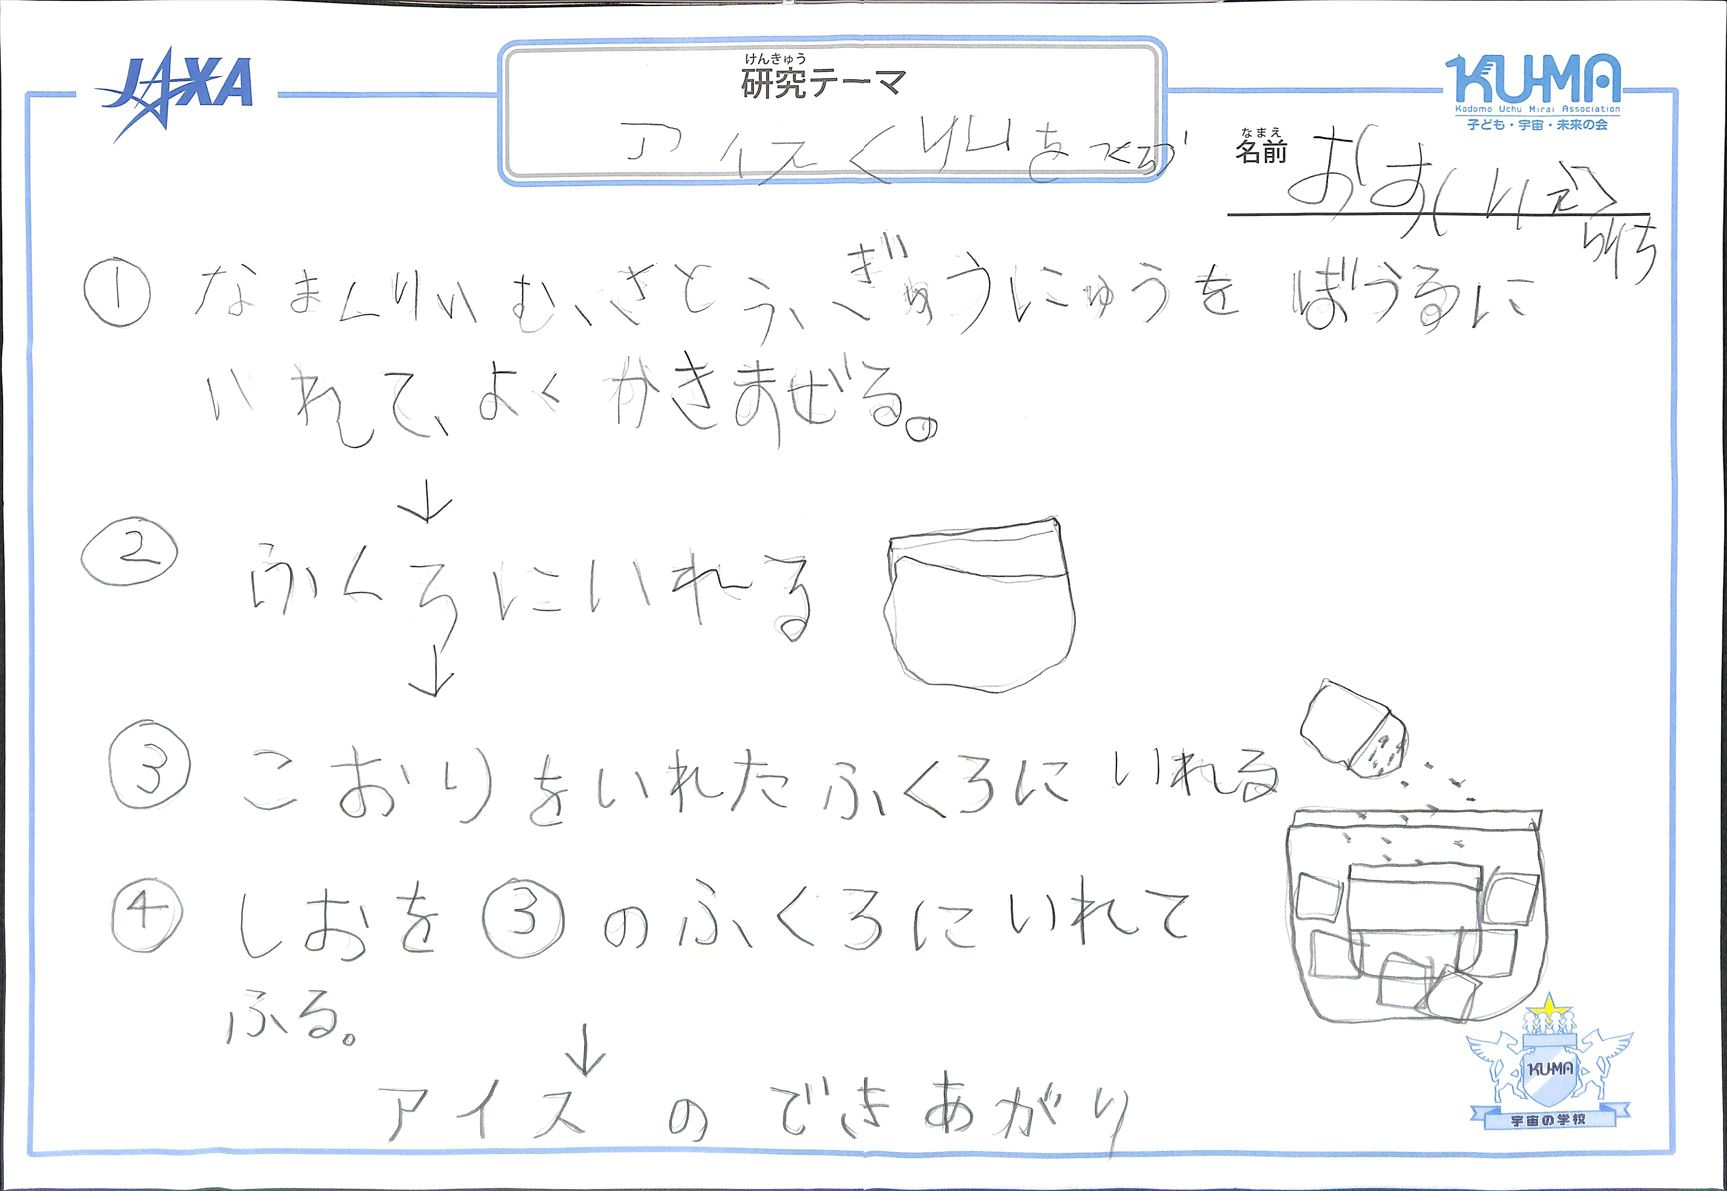 JAXA
けんきゅう
研究テーマ
アイスくりいむをつくろう
KU-MA
Kodomo Uchu Mirai Association
子ども・宇宙・未来の会
なまえ
名前
① なまくりいむ、さとう、ぎゅうにゅうを ばうるに
いれて、よくかきまぜる。
↓
② ふくろにいれる
↓
③ こおりをいれたふくろに いれる
④ しおを③のふくろにいれて
ふる。
↓
アイス の できあがり
KUMA
宇宙の学校